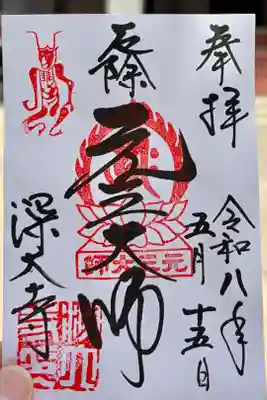 奉拝
令和八年
五月十五日
厄除
元三大師
元三大師
深大寺